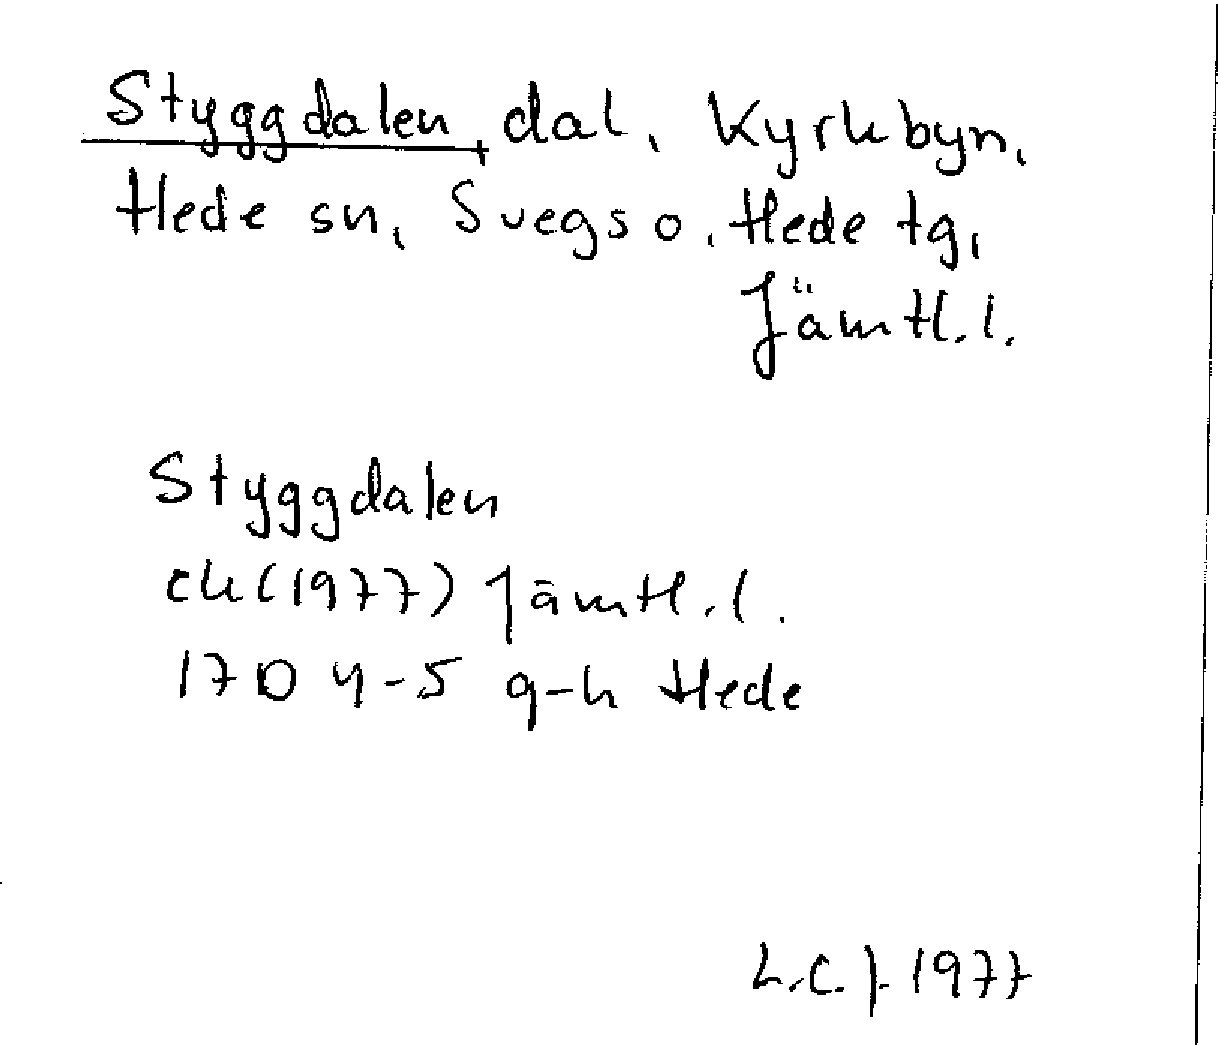 Styggdalen, dal, Kyrkbyn,
Hede sn, Svegs o, Hede tg,
Jämtl. l.
Styggdalen
ek (1977) Jämtl. l.
17D 4-5 g-h Hede
L.C.J. 1977